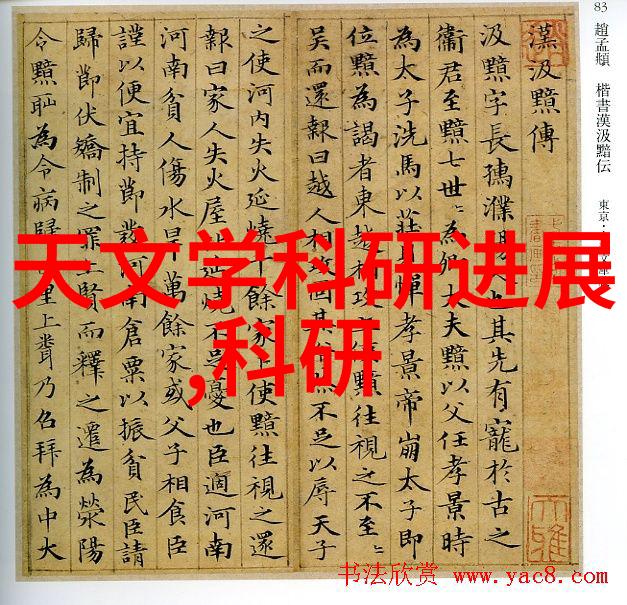 83 趙孟頫 楷書漢汲黯伝 東京・
漢汲黯傳
汲黯字長孺濮陽人也其先有寵於古之
衞君至黯七世=為卿大夫黯以父任孝景時
為太子洗馬以莊見憚孝景帝崩太子即
位黯為謁者東越相攻上使黯往視之不至=
吳而還報曰越人相攻固其俗然不足以辱天子
之使河內失火延燒千餘家上使黯往視之還
報曰家人失火屋比延燒不足憂也臣適河南
河南貧人傷水旱萬餘家或父子相食臣
謹以便宜持節發河南倉粟以振貧民臣請
歸節伏矯制之罪上賢而釋之遷為滎陽
令黯恥為令病歸田里上聞乃召拜為中大
天文学科研进展
,科研
书法欣赏 www.yac8.com